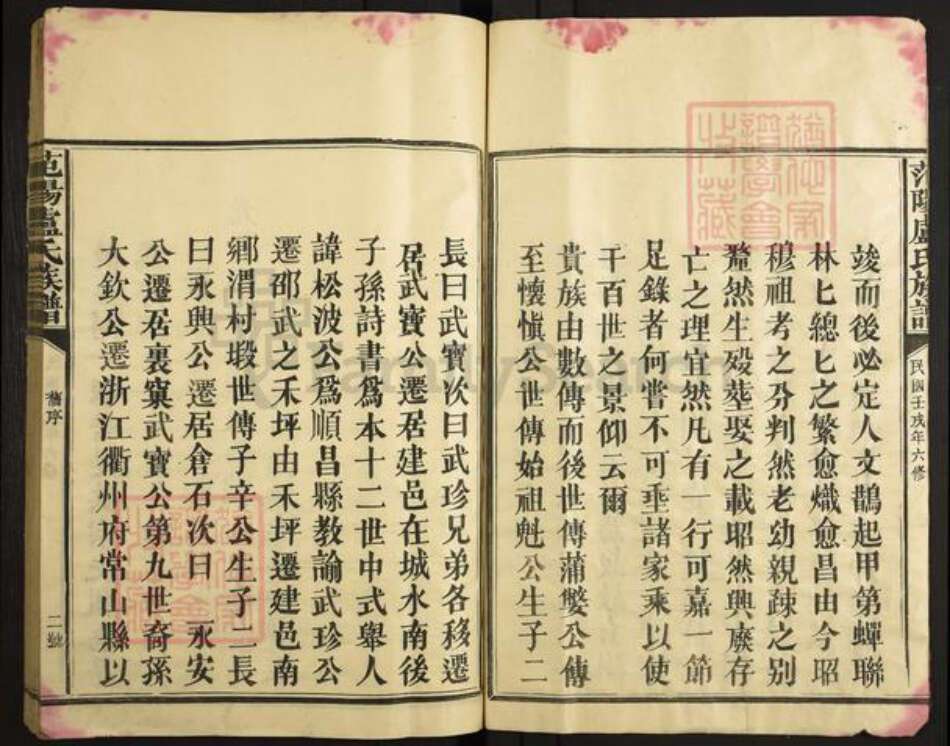 范陽盧氏族譜
民國壬戌年六修
竣而後必定人文鵲起甲第蟬聯
林匕總匕之繁愈熾愈昌由今昭
穆祖考之分判然老幼親疎之別
釐然生歿塟娶之載昭然興廢存
亡之理宜然凡有一行可嘉一節
足錄者何嘗不可垂諸家乘以使
千百世之景仰云爾
貴族由數傳而後世傳蒲嬰公傳
至懷愼公世傳始祖魁公生子二
長曰武寶次曰武珍兄弟各移遷
居武寶公遷居建邑在城水南後
子孫詩書爲本十二世中式舉人
諱松波公爲順昌縣教諭武珍公
遷邵武之禾坪由禾坪遷建邑南
鄉渭村塅世傳子辛公生子二長
曰永興公遷居倉石次曰永安
公遷居裏窠武寶公第九世裔孫
大欽公遷浙江衢州府常山縣以
范陽盧氏族譜
舊序
二